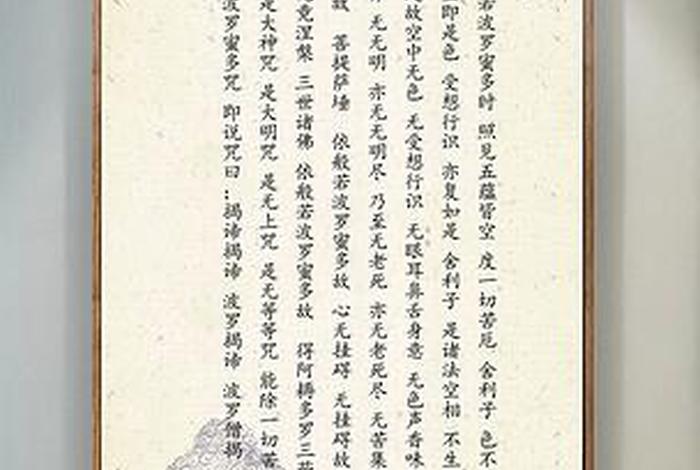 若波罗蜜多时 照见五蕴皆空 度一切苦厄 舍利子 色不
即是色 受想行识 亦复如是 舍利子 是诸法空相 不生
故空中无色 无受想行识 无眼耳鼻舌身意 无色声香味
无无明 亦无无明尽 乃至无老死 亦无老死尽 无苦集
故 菩提萨埵 依般若波罗蜜多故 心无挂碍 无挂碍故
竟涅槃 三世诸佛 依般若波罗蜜多故 得阿耨多罗三藐
是大神咒 是大明咒 是无上咒 是无等等咒 能除一切苦
波罗蜜多咒 即说咒曰：揭谛揭谛 波罗揭谛 波罗僧揭